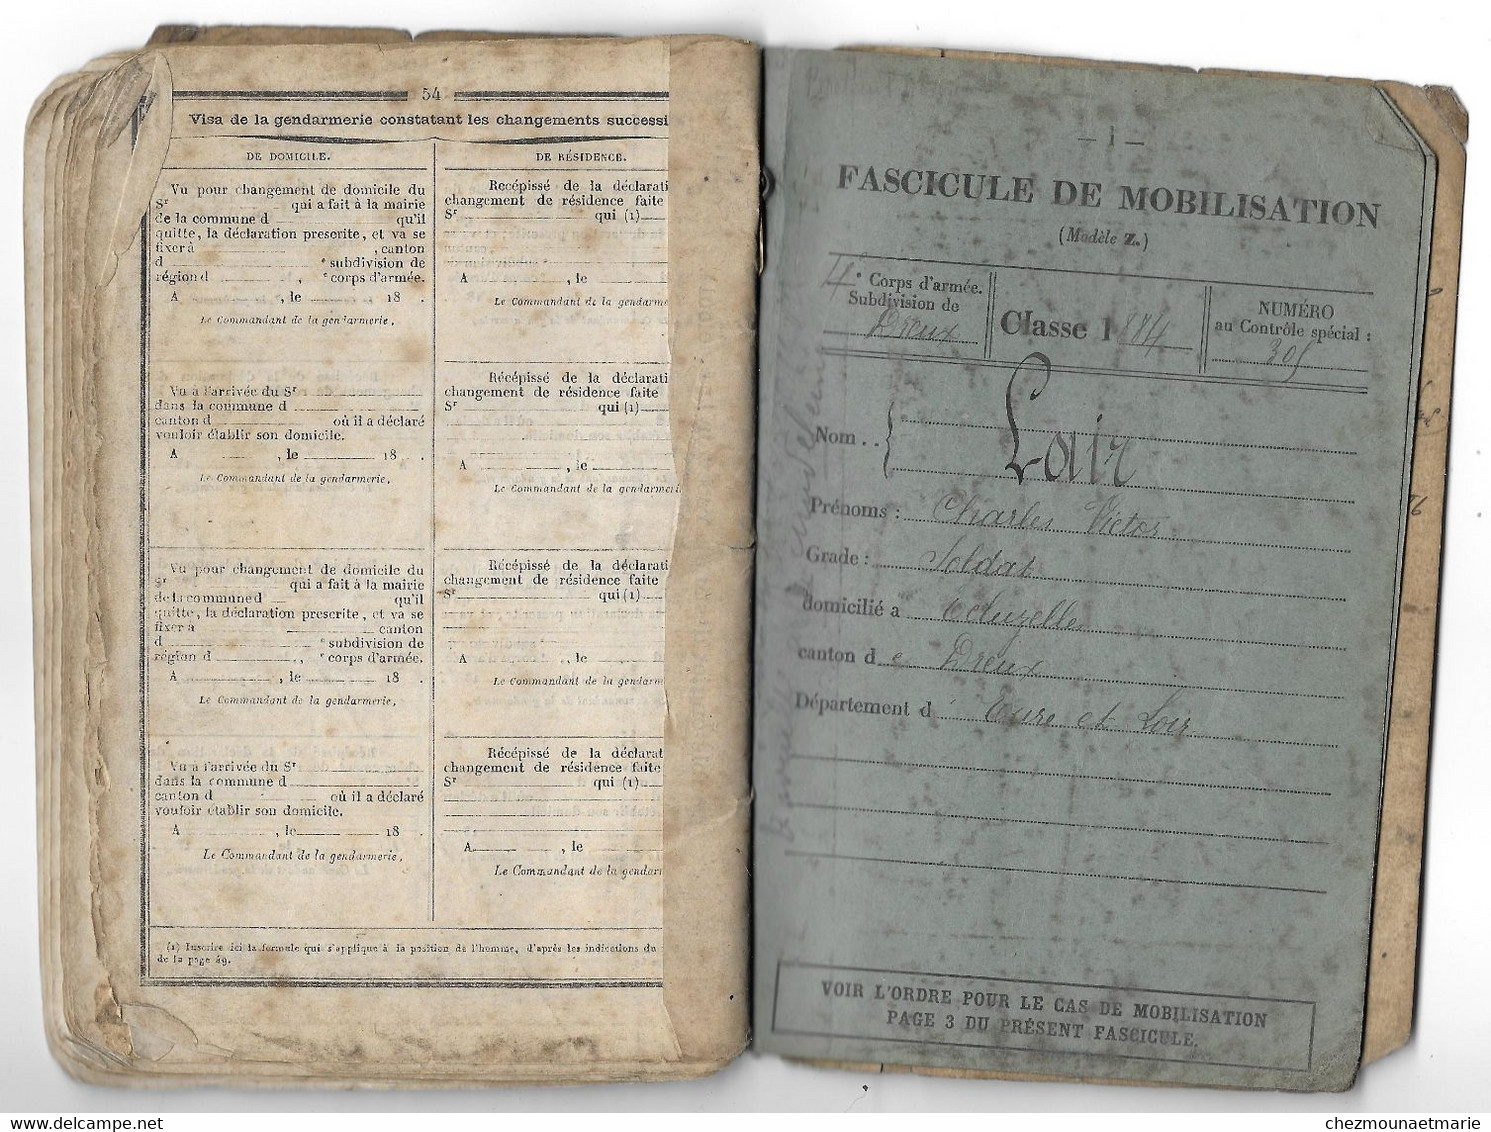 54
Visa de la gendarmerie constatant les changements successi
DE DOMICILE.
Vu pour changement de domicile du
Sr qui a fait à la mairie
de la commune d qu'il
quitte, la déclaration prescrite, et va se
fixer à , canton
d e subdivision de
région d , e corps d'armée.
A , le 18 .
Le Commandant de la gendarmerie,
Vu à l'arrivée du Sr
dans la commune d
canton d où il a déclaré
vouloir établir son domicile.
A , le 18 .
Le Commandant de la gendarmerie,
Vu pour changement de domicile du
Sr qui a fait à la mairie
de la commune d qu'il
quitte, la déclaration prescrite, et va se
fixer à canton
d e subdivision de
région d , e corps d'armée.
A , le 18 .
Le Commandant de la gendarmerie,
Vu à l'arrivée du Sr
dans la commune d
canton d où il a déclaré
vouloir établir son domicile.
A , le 18 .
Le Commandant de la gendarmerie,
DE RÉSIDENCE.
Recépissé de la déclarati
changement de résidence faite
Sr qui (1)
A , le
Le Commandant de la gendarme
Récépissé de la déclarati
changement de résidence faite
Sr qui (1)
A , le
Le Commandant de la gendarmeri
Récépissé de la déclarati
changement de résidence faite
Sr qui (1)
A , le
Le Commandant de la gendarme
Récépissé de la déclarat
changement de résidence faite
Sr qui (1)
A , le
Le Commandant de la gendarı
(1) Inscrire ici la formule qui s'applique à la position de l'homme, d'après les indications du
de la page 49.
— 1 —
FASCICULE DE MOBILISATION
(Modèle Z.)
4e Corps d'armée.
Subdivision de
Dreux
Classe 1884
NUMÉRO
au Contrôle spécial :
305
Nom . . Lair
Prénoms : Charles Victor
Grade : Soldat
domicilié à Ecluzelles
canton de Dreux
Département d' Eure et Loir
VOIR L'ORDRE POUR LE CAS DE MOBILISATION
PAGE 3 DU PRÉSENT FASCICULE.
chezmounaetmarie